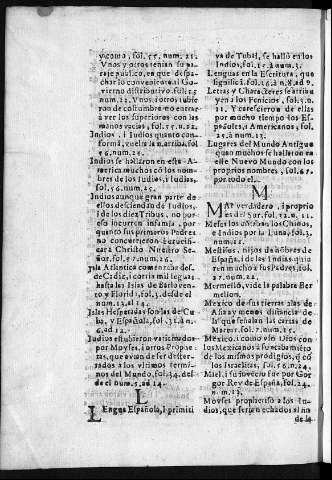 y como, fol. 55. num. 21.
Vnos y otros tenian su pa-
saje publico, en que despa-
char lo conveniente al Go-
vierno distributivo. fol. 55
num. 22. Vnos i otros tubie
ron de costumbre no entrar
à ver los superiores con las
manos vacias, fol. 55. n. 22.
Indios, i Iudios quanto con-
forma, vuelva n. arriba. fol
56. num. 23.
Indios se hallaron en esta A-
merica muchos cõ los nom-
bres de los Iudios, i Iudias,
fol. 56. num. 25.
Indios aunque gran parte de
ellos descienda de Iudios,
i de los diez Tribus, no por
esso incurren infamia, por
quanto sus primeros Padres
no concurrieron
à Christo Nuestro Se-
ñor. fol. 57. num. 26.
Isla Atlantica comenzaba des-
de Cadiz, i corria mil leguas
hasta las Islas de Barlovento
y Florida, fol. 3. desde el
num. 13. al 14.
Islas Hesperadas son las de Cu-
ba, y Española, fol. 32. à n.
6. ad 12.
Iudios estubieron vaticinados
por Moyses, i otros Prophe-
tas, que avian de ser desterra-
rados a los vltimos terminos
del Mundo, fol. 34. desde
de el num. 5. ad 14.
L
LEngua Española, i primiti
va de Tubal, se hallò en los
Indios, fol. 15. à num. 3.
Lenguas en la Escritura, que
significa. fol. 16. à n. 8. ad 9.
Letras y Characteres se atribu
yen a los Fenicios, fol. 30.
11. Y carecieron de ellas
por mucho tiempo los Es-
pañoles, i Americanos, fol.
25. à num. 13.
Lugares del Mundo Antiguo
quan muchos se hallaron en
este Nuevo Mundo con los
proprios nombres, fol. 67.
por todo el.
M
MAr verdadero, i proprio
es del Sur. fol. 12. n. 11.
Meses los cuentan los Chinos,
è Indios por la Luna, fol. 3.
num. 12.
Mestizos, hijos de hõbres de
España, i de las Indias quie
ren mucho a sus Padres, fol.
27. num. 22.
Mermellõ, vide la palabra Ber
mellon.
Mexico de sus tierras altas de
Asia ay menos distancia de
la que señalan las cartas de
Marear. fol. 7. num. 15.
Mexico, i como vin Dios con
los Mexicanos à su cabamiẽto
de los mismos prodigios, q̃ cõ
los Israelitas, fol. 56. n. 24.
Miel, i su iovelero fue por Gor
gor Rey de España, fol. 24.
n. m. 13.
Moyses prophetizo a los In-
dios, que serian echados al no
de la